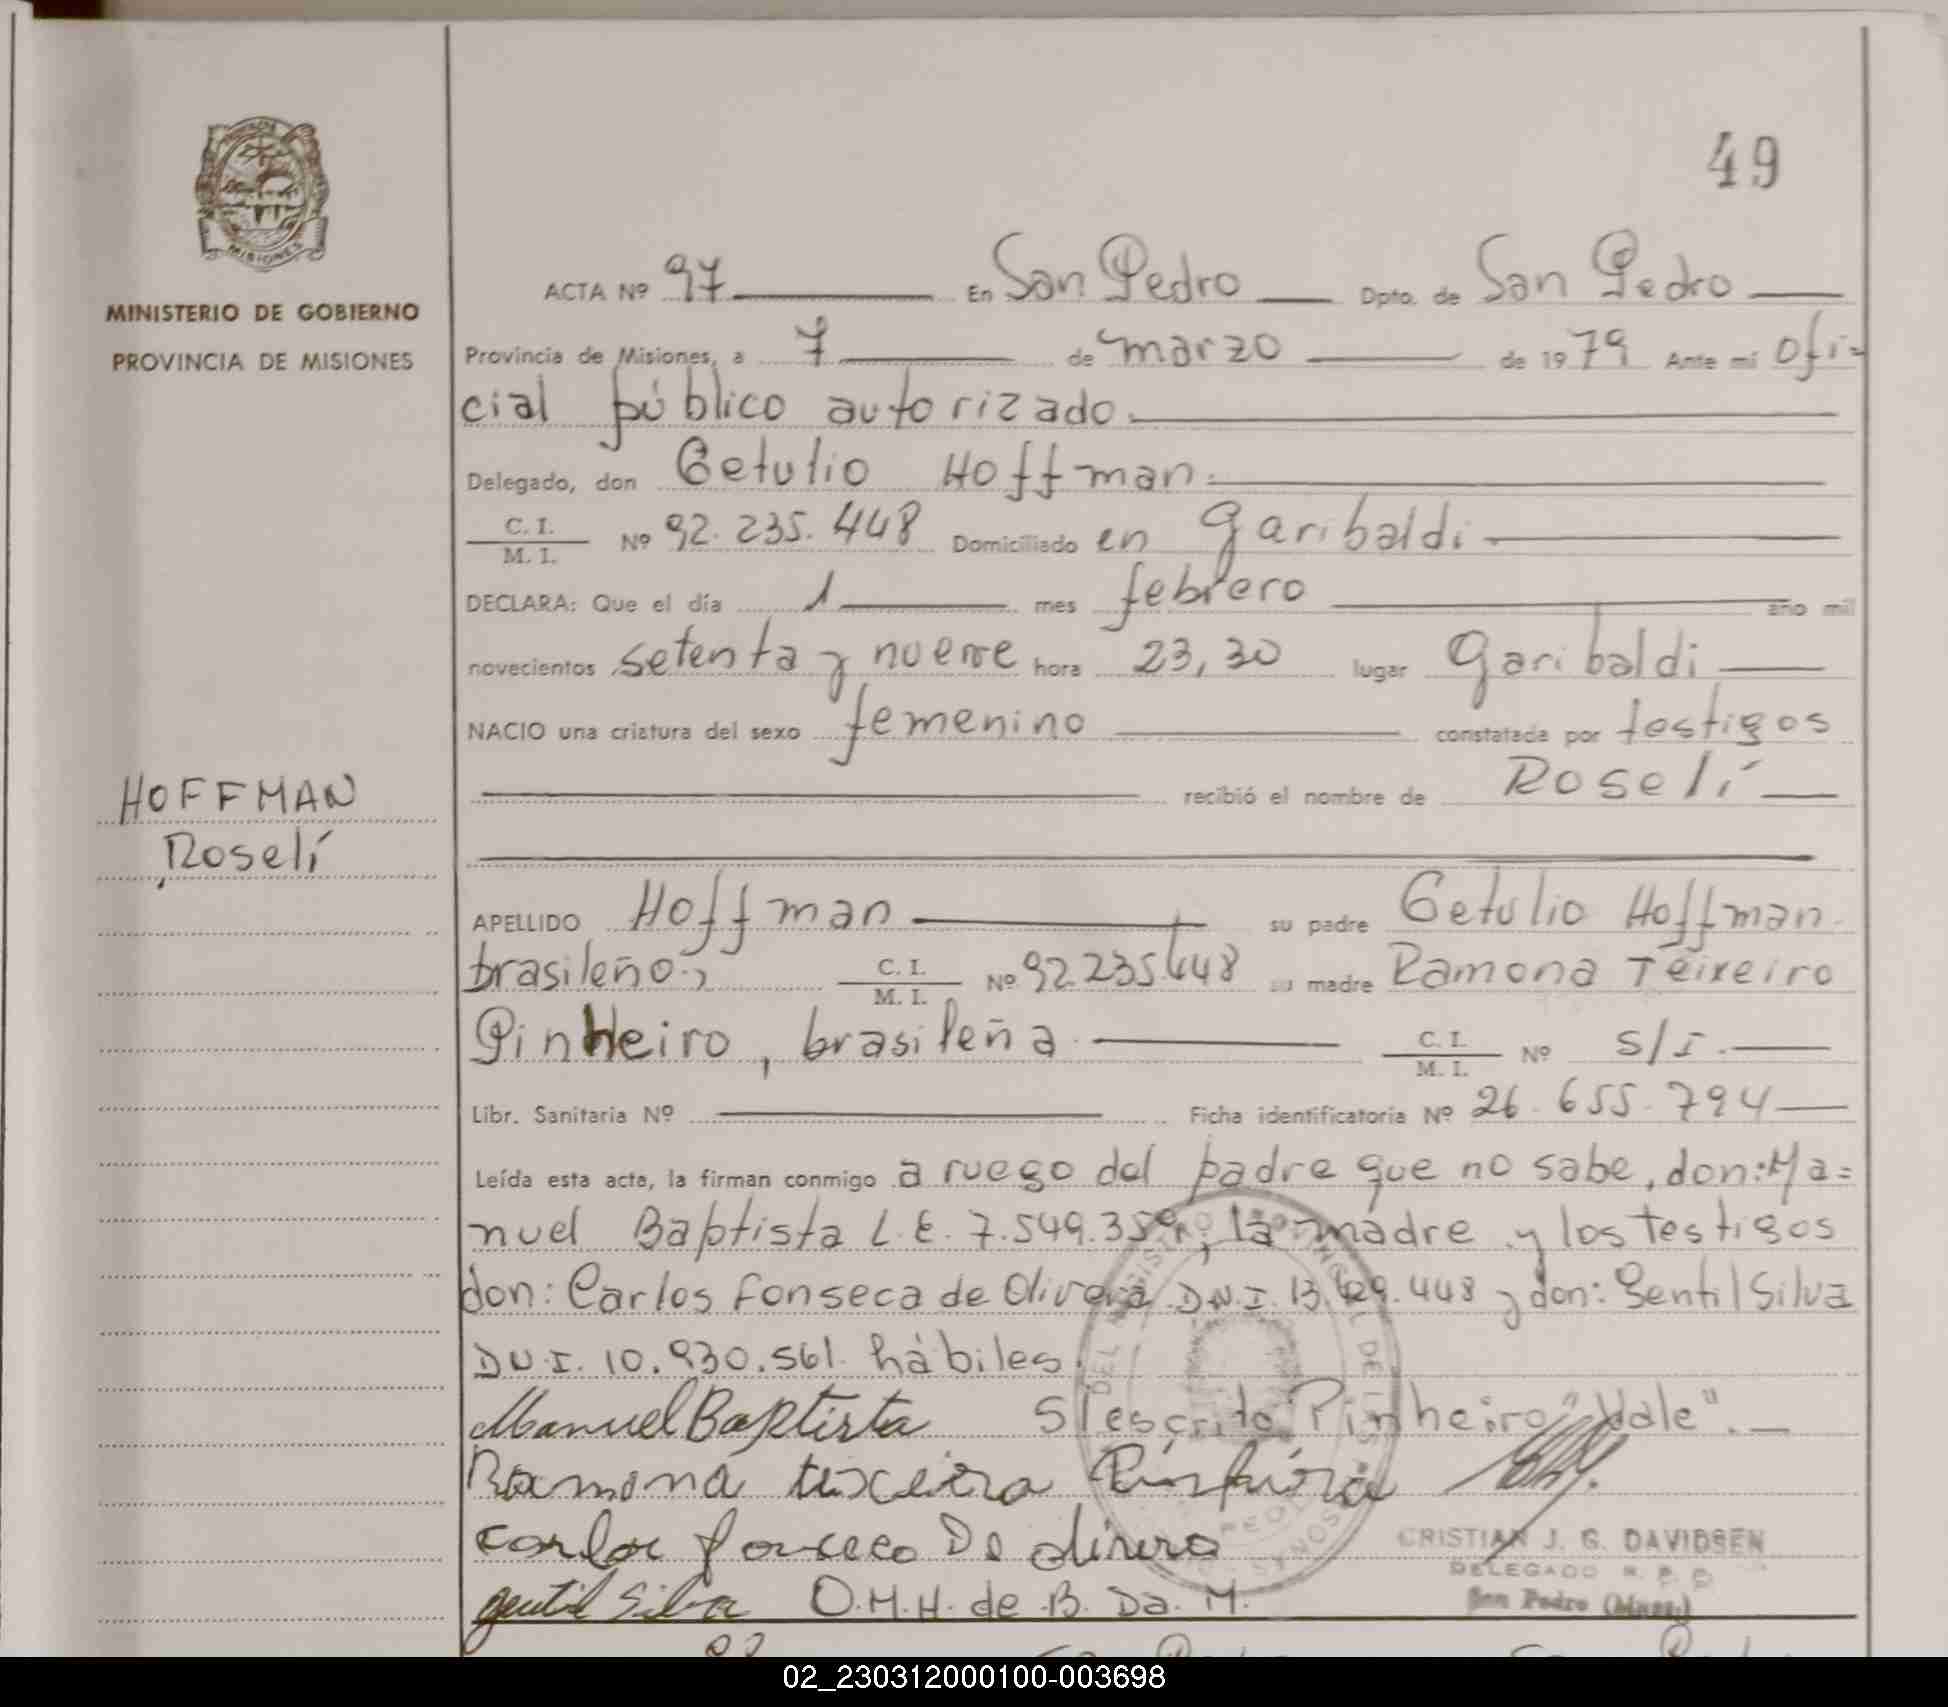 49
MISIONES
MINISTERIO DE GOBIERNO
PROVINCIA DE MISIONES
HOFFMAN
, Roselí
ACTA Nº 97 En San Pedro Dpto. de San Pedro
Provincia de Misiones, a 7 de marzo de 1979 Ante mi ofi-
cial público autorizado.
Delegado, don Getulio Hoffman.
C. I. / M. I. Nº 92.235.448 Domiciliado en Garibaldi
DECLARA: Que el día 1 mes febrero año mil
novecientos setenta y nueve hora 23,30 lugar Garibaldi
NACIO una criatura del sexo femenino constatada por testigos
recibió el nombre de Roselí
APELLIDO Hoffman su padre Getulio Hoffman.
brasileño., C. I. / M. I. Nº 92.235.448 su madre Ramona Teixeiro
Pinheiro, brasileña C. I. / M. I. Nº S/I.
Libr. Sanitaria Nº Ficha identificatoria Nº 26.655.794
Leída esta acta, la firman conmigo a ruego del padre que no sabe, don: Ma=
nuel Baptista L.E. 7.549.359, la madre y los testigos
don: Carlos Fonseca de Olivera D.N.I. 13. .448 y don: Gentil Silva
DN.I. 10.930.561. hábiles.
Manuel Baptista S/escrito Pinheiro "Vale".
Ramona teixeira
Carlos fonseca De olivera
CRISTIAN J. G. DAVIDSEN
DELEGADO R. P.
gentil Silva O.M.H. de B. Da. M.
San Pedro (Mnes.)
02_230312000100-003698